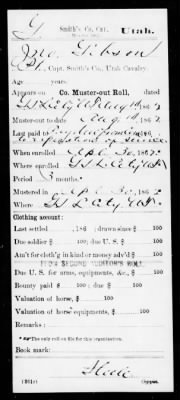 G | Smith's Co. Cav. | Utah.
Jno. Gibson
Pt., Capt. Smith's Co., Utah Cavalry.
Age years.
Appears on Co. Muster-out Roll, dated
G S L City U T Aug 14, 1862
Muster-out to date Aug 14, 1862
Last paid to
to expiration of service
When enrolled Apl 30, 1862
Where enrolled G S L City U T
Period 3 months.
Mustered in Apl 30, 1862
Where G S L City U T
Clothing account:
Last settled , 186 ; drawn since $ 100
Due soldier $ 100; due U. S. $ 100
Am't for cloth'g in kind or money adv'd $ 100
FROM SECOND AUDITOR'S ROLL
Due U. S. for arms, equipments, &c., $ 100
Bounty paid $ 100; due $ 100
Valuation of horse, $ 100
Valuation of horse equipments, $ 100
Remarks:
*The only roll on file for this organization.
Book mark:
(361c) Copyist.